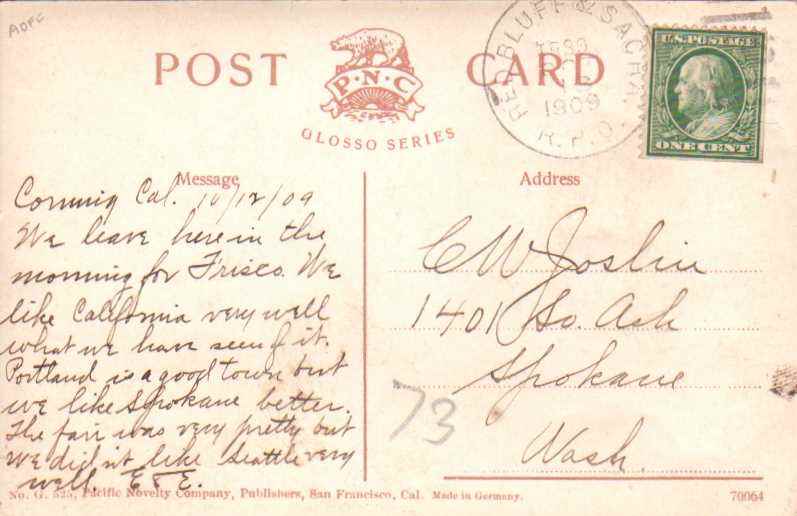 AOFC
POST CARD
P·N·C
GLOSSO SERIES
RED BLUFF & SACR.
1909
R.P.O.
U.S. POSTAGE
ONE CENT
Message
Corning Cal. 10/12/09
We leave here in the
morning for Frisco. We
like California very well
what we have seen of it.
Portland is a good town but
we like Spokane better.
The fair was very pretty but
we did n't like Seattle very
well. E & E.
Address
C W Joslin
1401 So. Ash
Spokane
Wash.
73
No. G. 525, Pacific Novelty Company, Publishers, San Francisco, Cal. Made in Germany.
70064